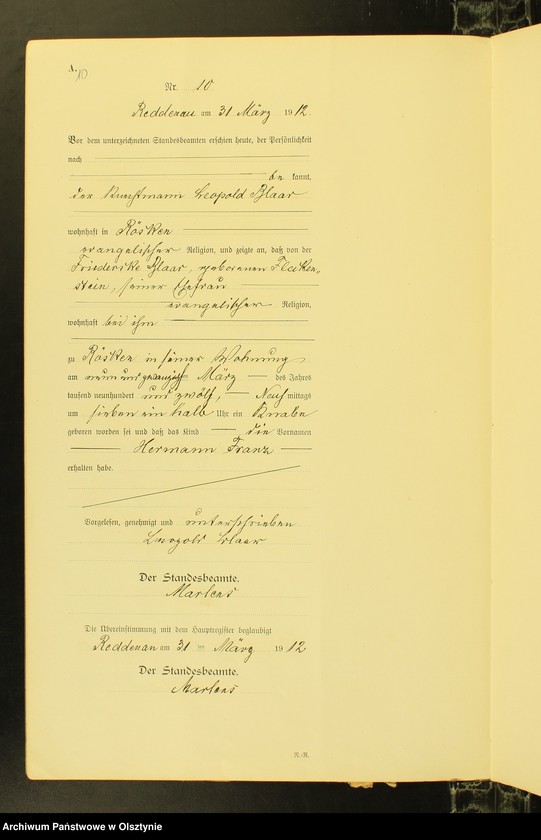 A.
10
Nr. 10
Reddenau am 31 März 1912.
Vor dem unterzeichneten Standesbeamten erschien heute, der Persönlichkeit
nach
be kannt,
der Kunstmann Leopold Blaar
wohnhaft in Rösken
evangelischer Religion, und zeigte an, daß von der
Friederike Blaar, geborenen Flaken-
stein, seiner Ehefrau
evangelischer Religion,
wohnhaft bei ihm
zu Rösken in seiner Wohnung
am neunundzwanzigsten März des Jahres
tausend neunhundert und zwölf, Nach mittags
um sieben ein halb Uhr ein Knabe
geboren worden sei und daß das Kind die Vornamen
Hermann Franz
erhalten habe.
Vorgelesen, genehmigt und unterschrieben
Leopold Blaar
Der Standesbeamte.
Martens
Die Übereinstimmung mit dem Hauptregister beglaubigt
Reddenau am 31 ten März 1912
Der Standesbeamte.
Martens
N.-R.
Archiwum Państwowe w Olsztynie